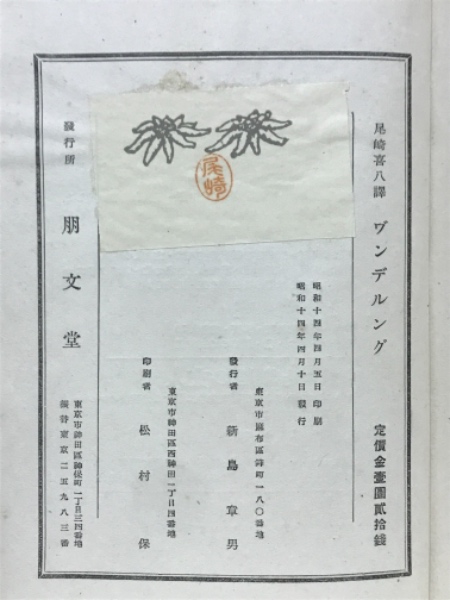 尾崎喜八譯 ヴンデルング 定價金壹圓貳拾錢
尾崎
昭和十四年四月五日印刷
昭和十四年四月十日發行
東京市麻布區 町一八〇番地
發行者 新島章男
東京市神田區西神田一丁目四番地
印刷者 松村保
發行所 朋文堂
東京市神田區神保町一丁目三四番地
振替東京二五九八三番